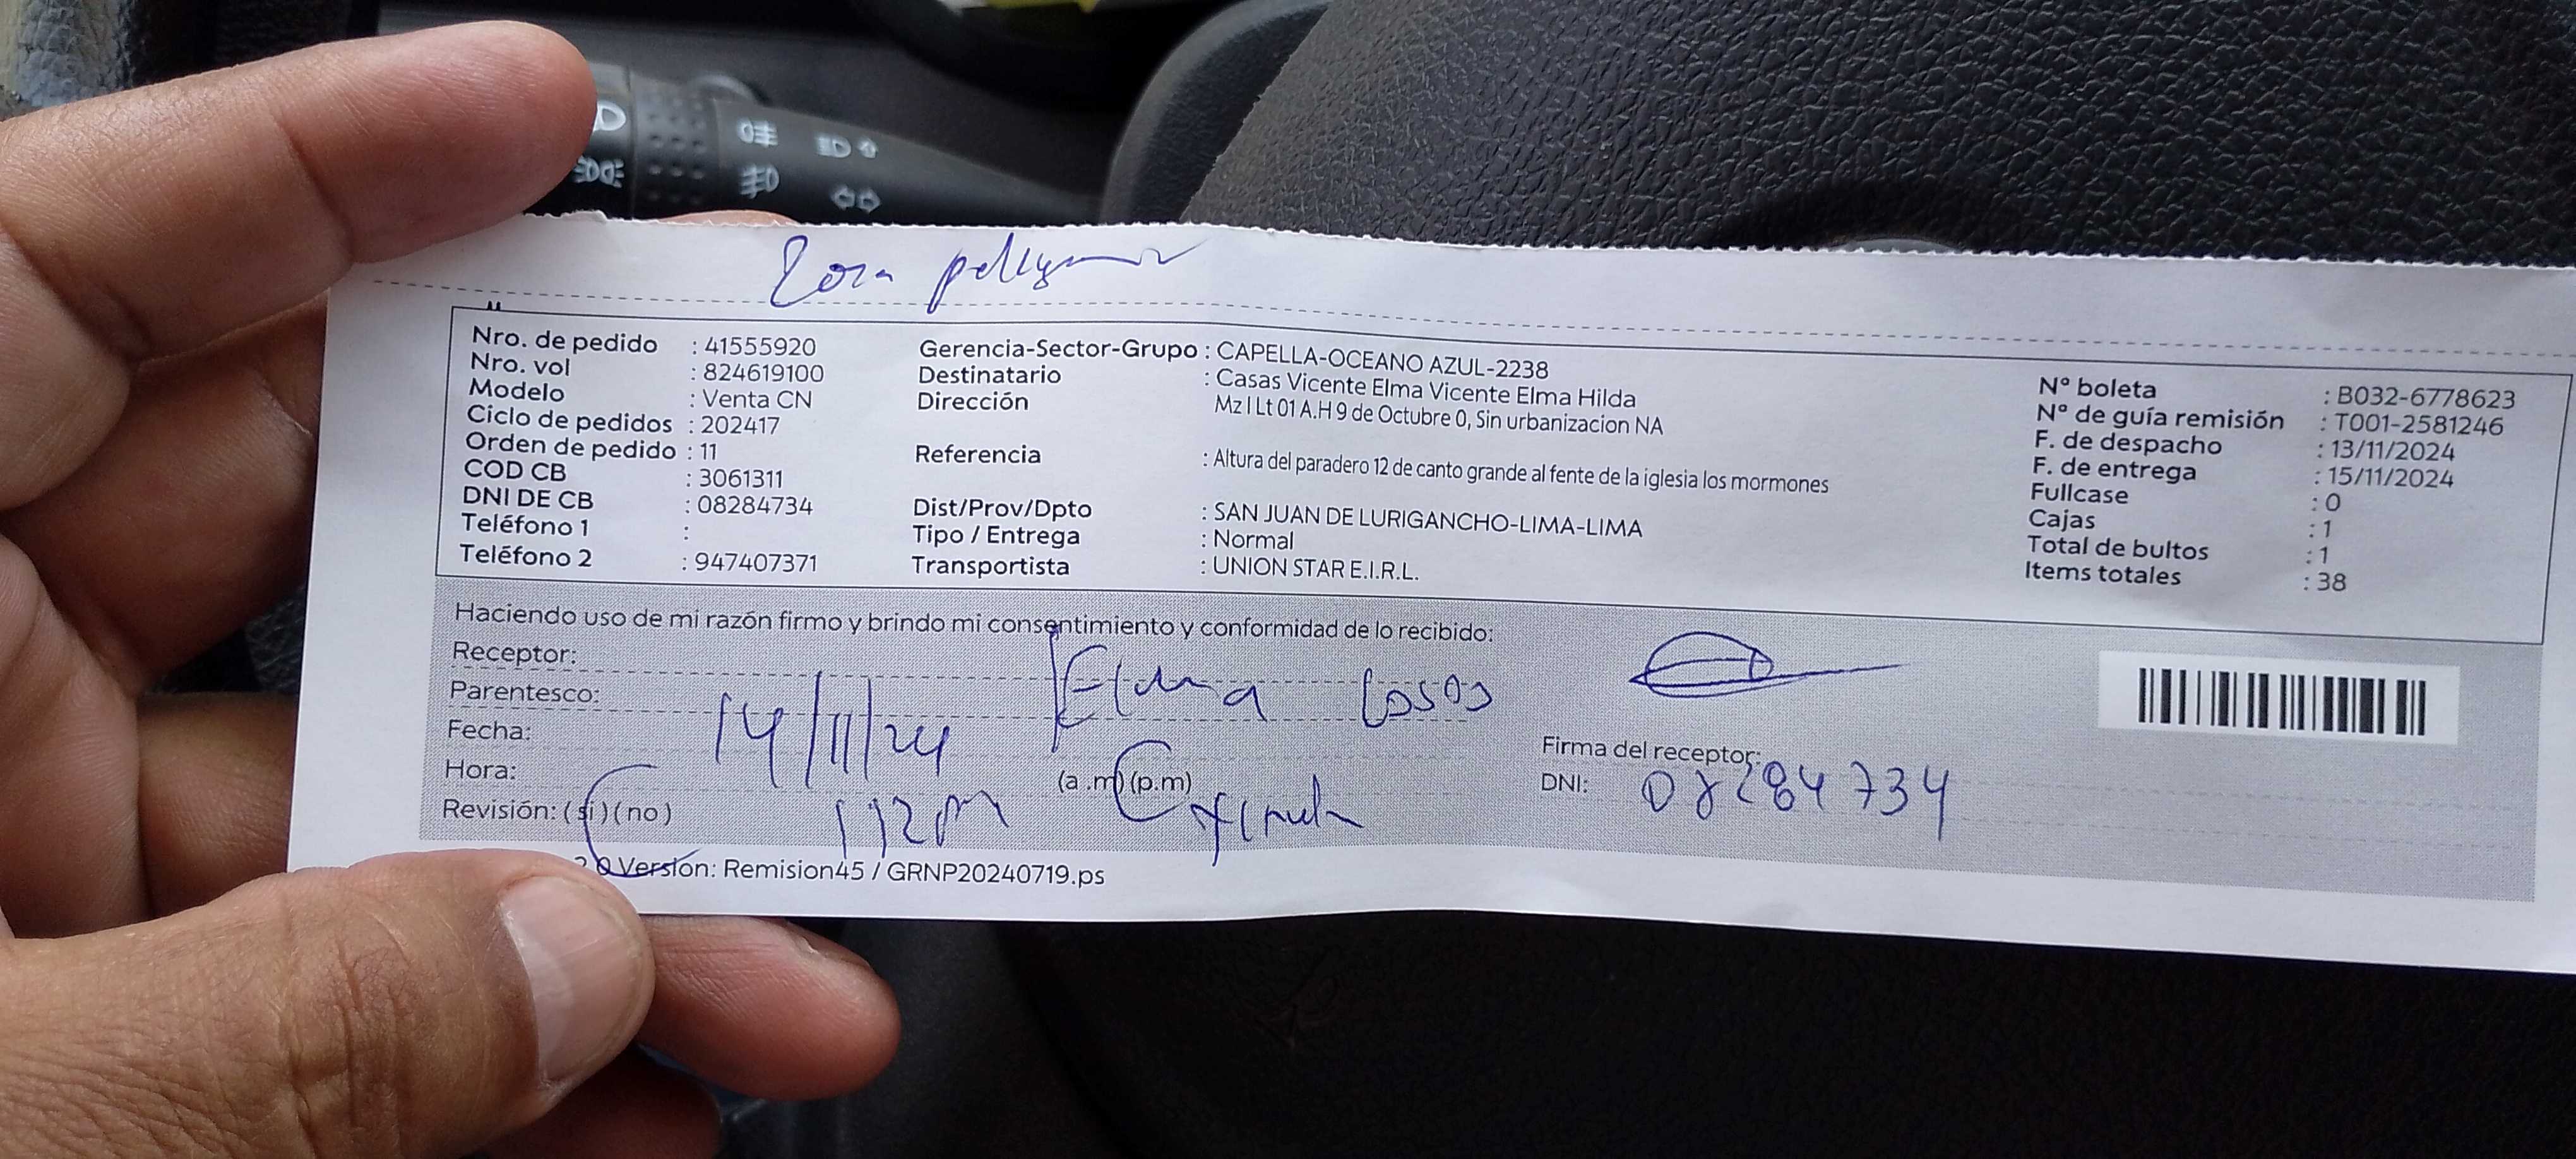 Zona peligrosa
Nro. de pedido : 41555920
Nro. vol : 824619100
Modelo : Venta CN
Ciclo de pedidos : 202417
Orden de pedido : 11
COD CB : 3061311
DNI DE CB : 08284734
Teléfono 1 :
Teléfono 2 : 947407371
Gerencia-Sector-Grupo : CAPELLA-OCEANO AZUL-2238
Destinatario : Casas Vicente Elma Vicente Elma Hilda
Dirección Mz I Lt 01 A.H 9 de Octubre 0, Sin urbanizacion NA
Referencia : Altura del paradero 12 de canto grande al fente de la iglesia los mormones
Dist/Prov/Dpto : SAN JUAN DE LURIGANCHO-LIMA-LIMA
Tipo / Entrega : Normal
Transportista : UNION STAR E.I.R.L.
N° boleta : B032-6778623
N° de guía remisión : T001-2581246
F. de despacho : 13/11/2024
F. de entrega : 15/11/2024
Fullcase : 0
Cajas : 1
Total de bultos : 1
Items totales : 38
Haciendo uso de mi razón firmo y brindo mi consentimiento y conformidad de lo recibido:
Receptor: Elma Casas
Parentesco:
Fecha: 14/11/24
Hora: (a.m) (p.m)
Revisión: (si) (no)
Firma del receptor:
DNI: 08284734
Versíon: Remision45 / GRNP20240719.ps